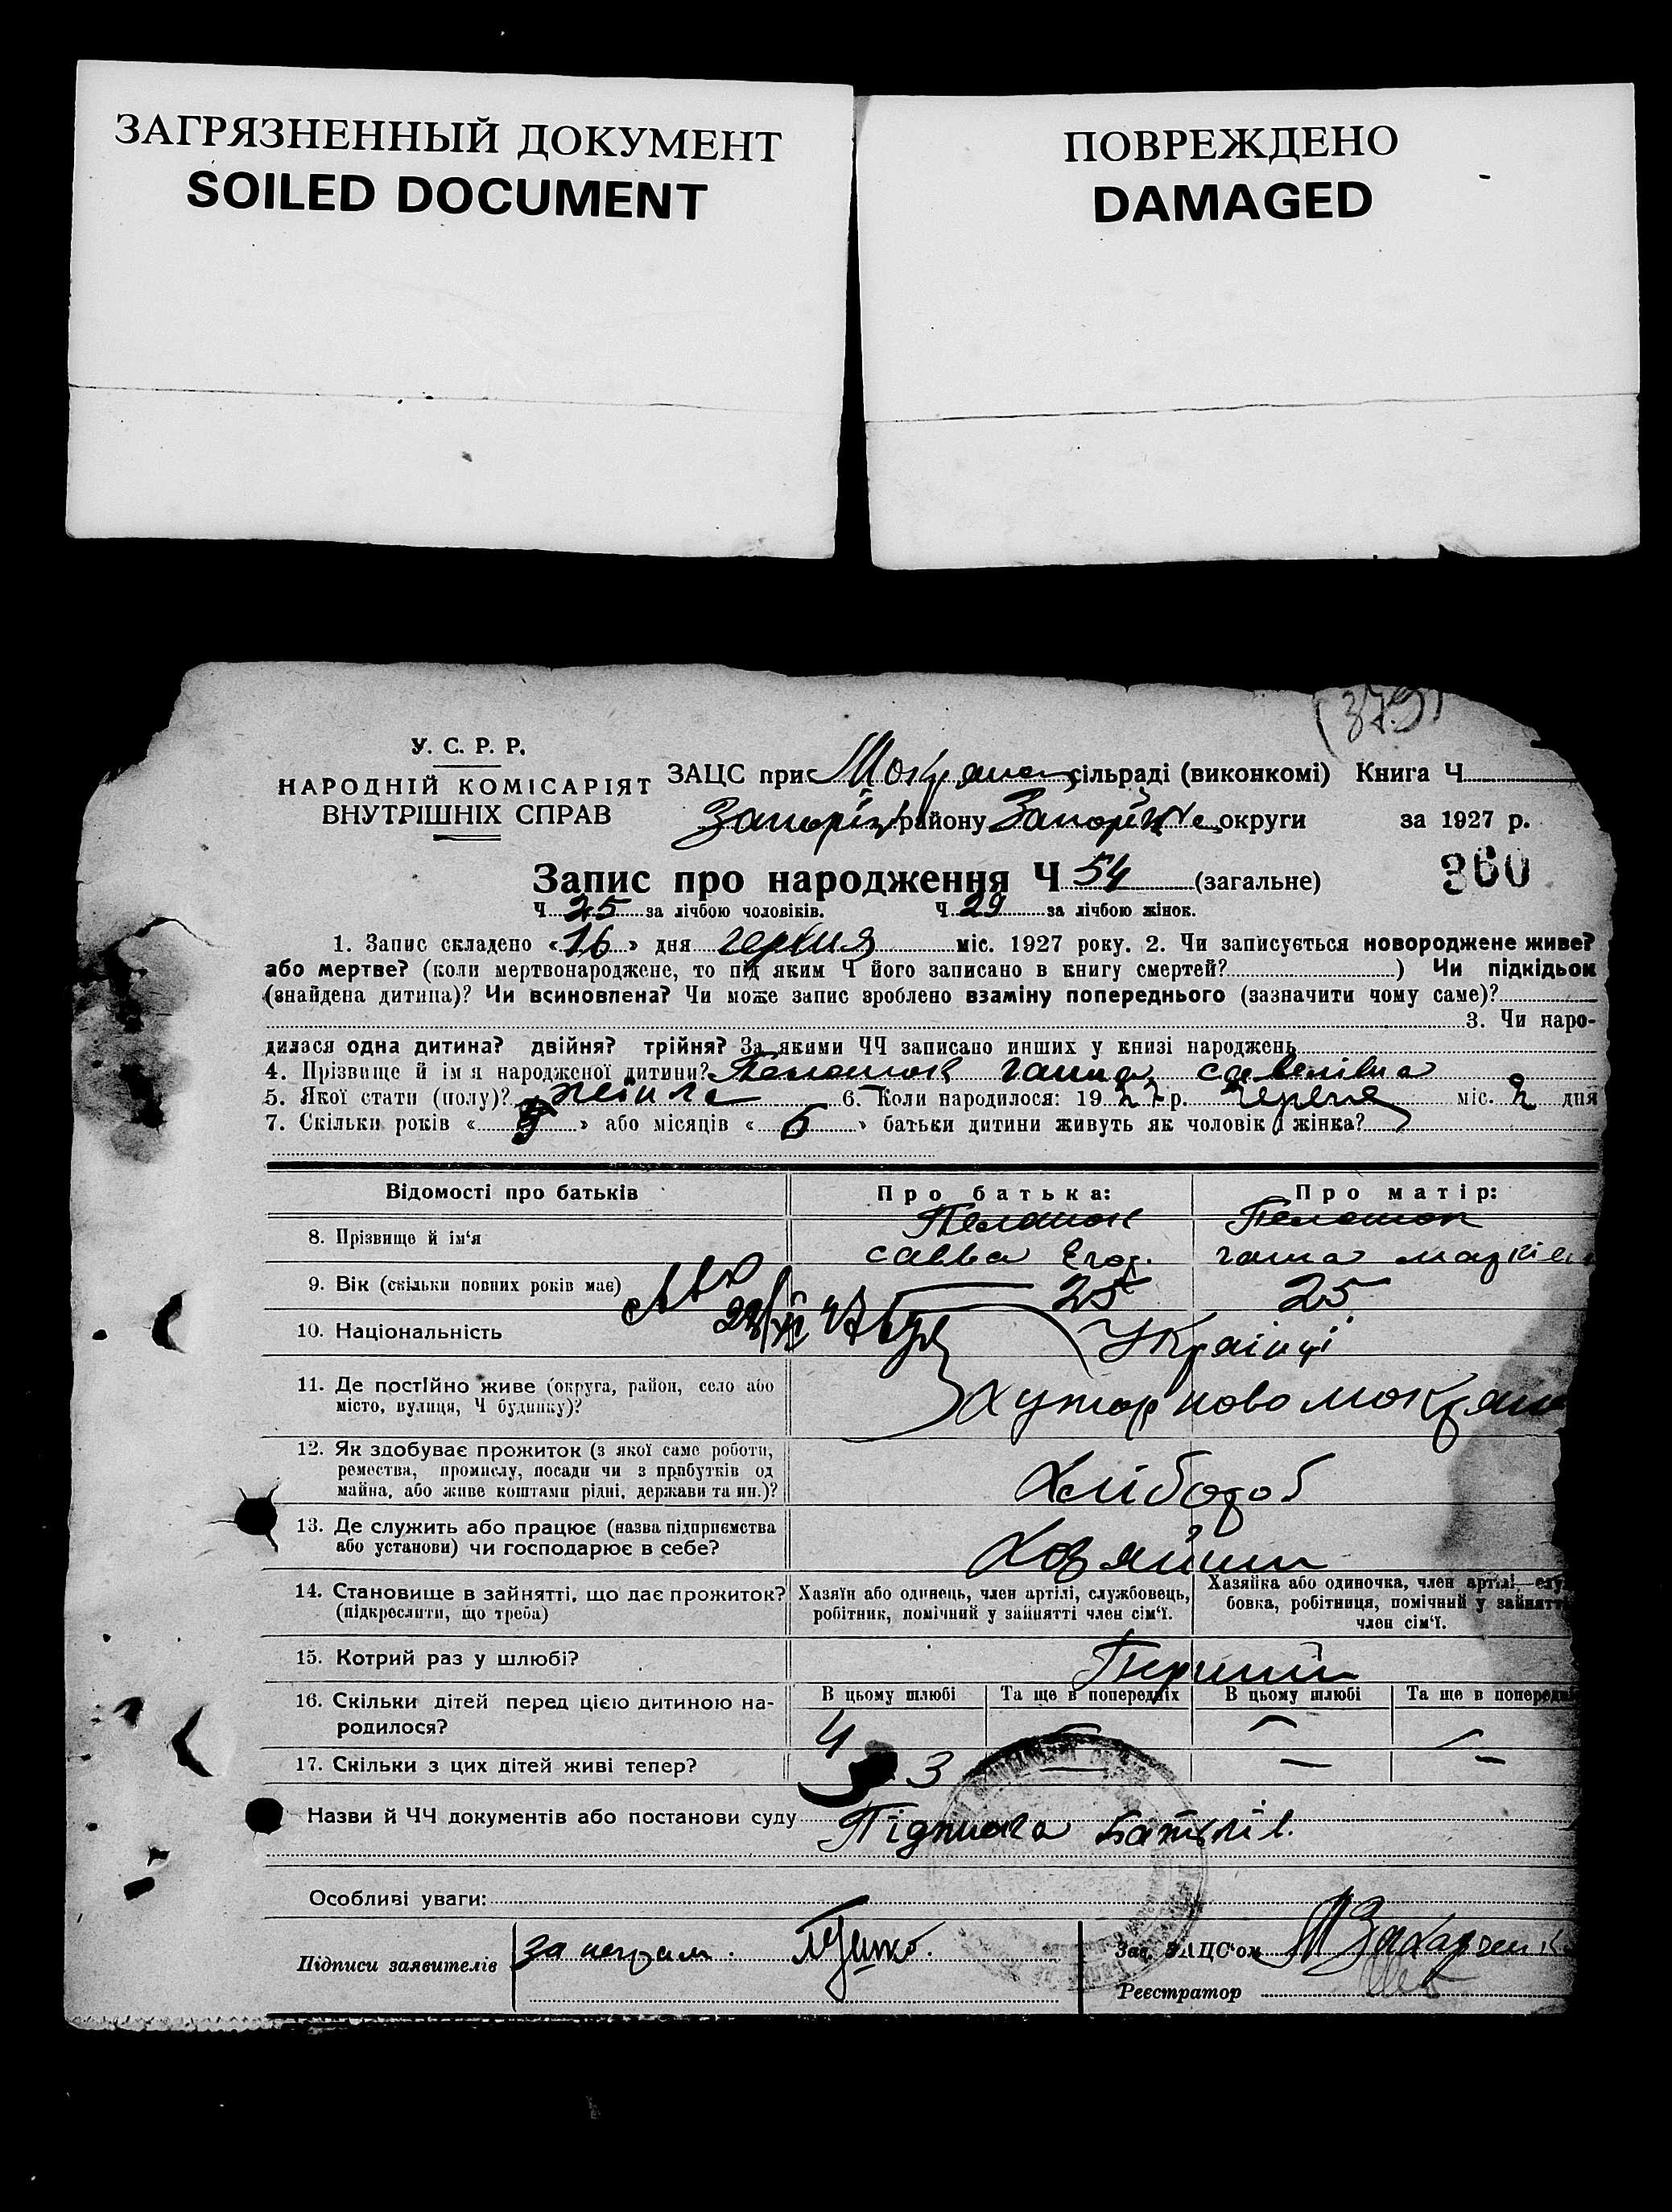 ЗАГРЯЗНЕННЫЙ ДОКУМЕНТ
SOILED DOCUMENT
ПОВРЕЖДЕНО
DAMAGED
(379)
У. С. Р. Р.
НАРОДНІЙ КОМІСАРІЯТ
ВНУТРІШНІХ СПРАВ
ЗАЦС при сільраді (виконкомі) Книга Ч
району округи за 1927 р.
360
Запис про народження Ч 54 (загальне)
Ч 25 за лічбою чоловіків. Ч 29 за лічбою жінок.
1. Запис складено «16» дня червня міс. 1927 року. 2. Чи записується новороджене живе?
або мертве? (коли мертвонароджене, то під яким Ч його записано в книгу смертей? ) Чи підкідьок
(знайдена дитина)? Чи всиновлена? Чи може запис зроблено взаміну попереднього (зазначити чому саме)?
3. Чи наро-
дилася одна дитина? двійня? трійня? За якими ЧЧ записано инших у книзі народжень
4. Прізвище й ім я народженої дитини? ганна савелівна
5. Якої стати (полу)? 6. Коли народилося: 1927 р. червня міс. 2 дня
7. Скільки років « » або місяців « 6 » батьки дитини живуть як чоловік і жінка?
Відомості про батьків
Про батька:
Про матір:
8. Прізвище й ім'я
савва Егор.
ганна
9. Вік (скільки повних років має)
25
25
10. Національність
Українці
11. Де постійно живе (округа, район, село або
місто, вулиця, Ч будинку)?
Хутор ново мокрян
12. Як здобуває прожиток (з якої саме роботи,
ремества, промислу, посади чи з прибутків од
майна, або живе коштами рідні, держави та ин.)?
Хлібороб
13. Де служить або працює (назва підприємства
або установи) чи господарює в себе?
Хозяйин
14. Становище в зайнятті, що дає прожиток?
(підкреслити, що треба)
Хазяїн або одинець, член артілі, службовець,
робітник, помічний у зайнятті член сім'ї.
Хазяйка або одиночка, член артілі, служ
бовка, робітниця, помічний у зайнятті
член сім'ї.
15. Котрий раз у шлюбі?
Перший
16. Скільки дітей перед цією дитиною на-
родилося?
В цьому шлюбі
Та ще в попередніх
В цьому шлюбі
Та ще в попередніх
4 — — —
17. Скільки з цих дітей живі тепер?
3 — — —
Назви й ЧЧ документів або постанови суду
Підписка батьків.
Особливі уваги:
Підписи заявителів за неграм.
Зав. ЗАЦС'ом Захарченко
Реєстратор